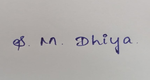 S. M. Dhiya.